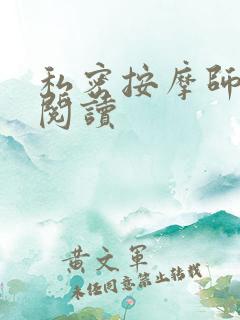 私密按摩師
閱讀
黃文軍
未經同意禁止轉載